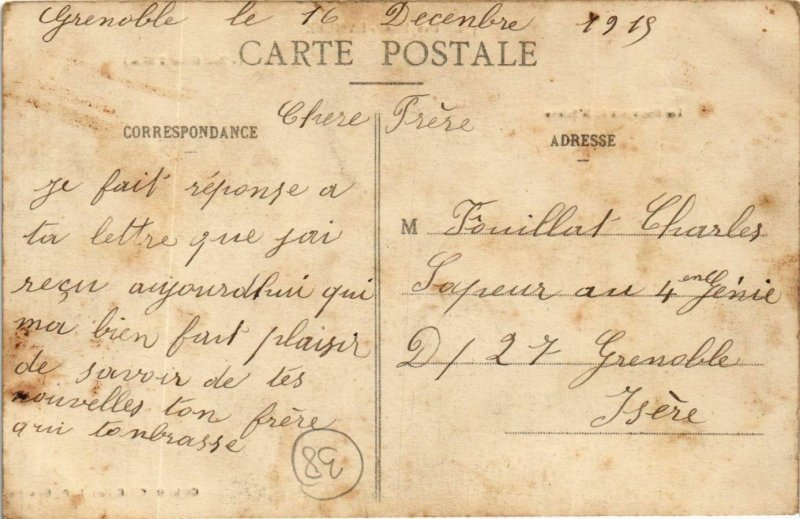 Grenoble le 16 Decenbre 1915
CARTE POSTALE
Chere Frère
CORRESPONDANCE
je fait réponse a
ta lettre que jai
reçu aujourdhui qui
ma bien fait plaisir
de savoir de tes
nouvelles ton frère
qui tonbrasse
38
ADRESSE
M Fouillat Charles
Sapeur au 4eme Génie
D/27 Grenoble
Isère